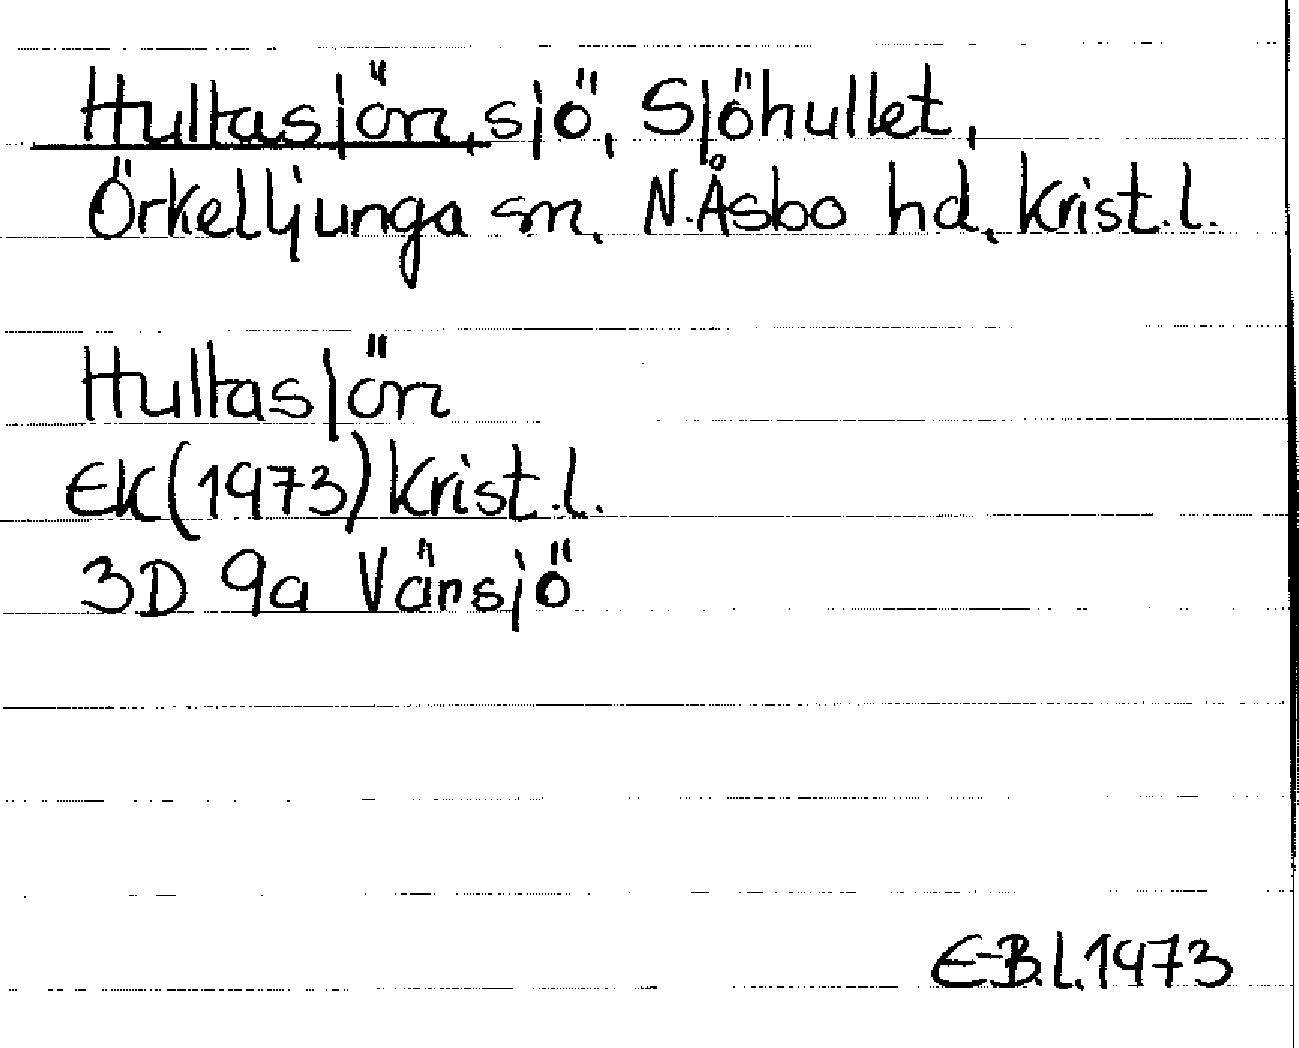 Hultasjön, sjö, Sjöhultet,
Örkelljunga sn, N.Åsbo hd, Krist.l.
Hultasjön
EK(1973)Krist.l.
3D 9a Vänsjö
E-B.l.1973